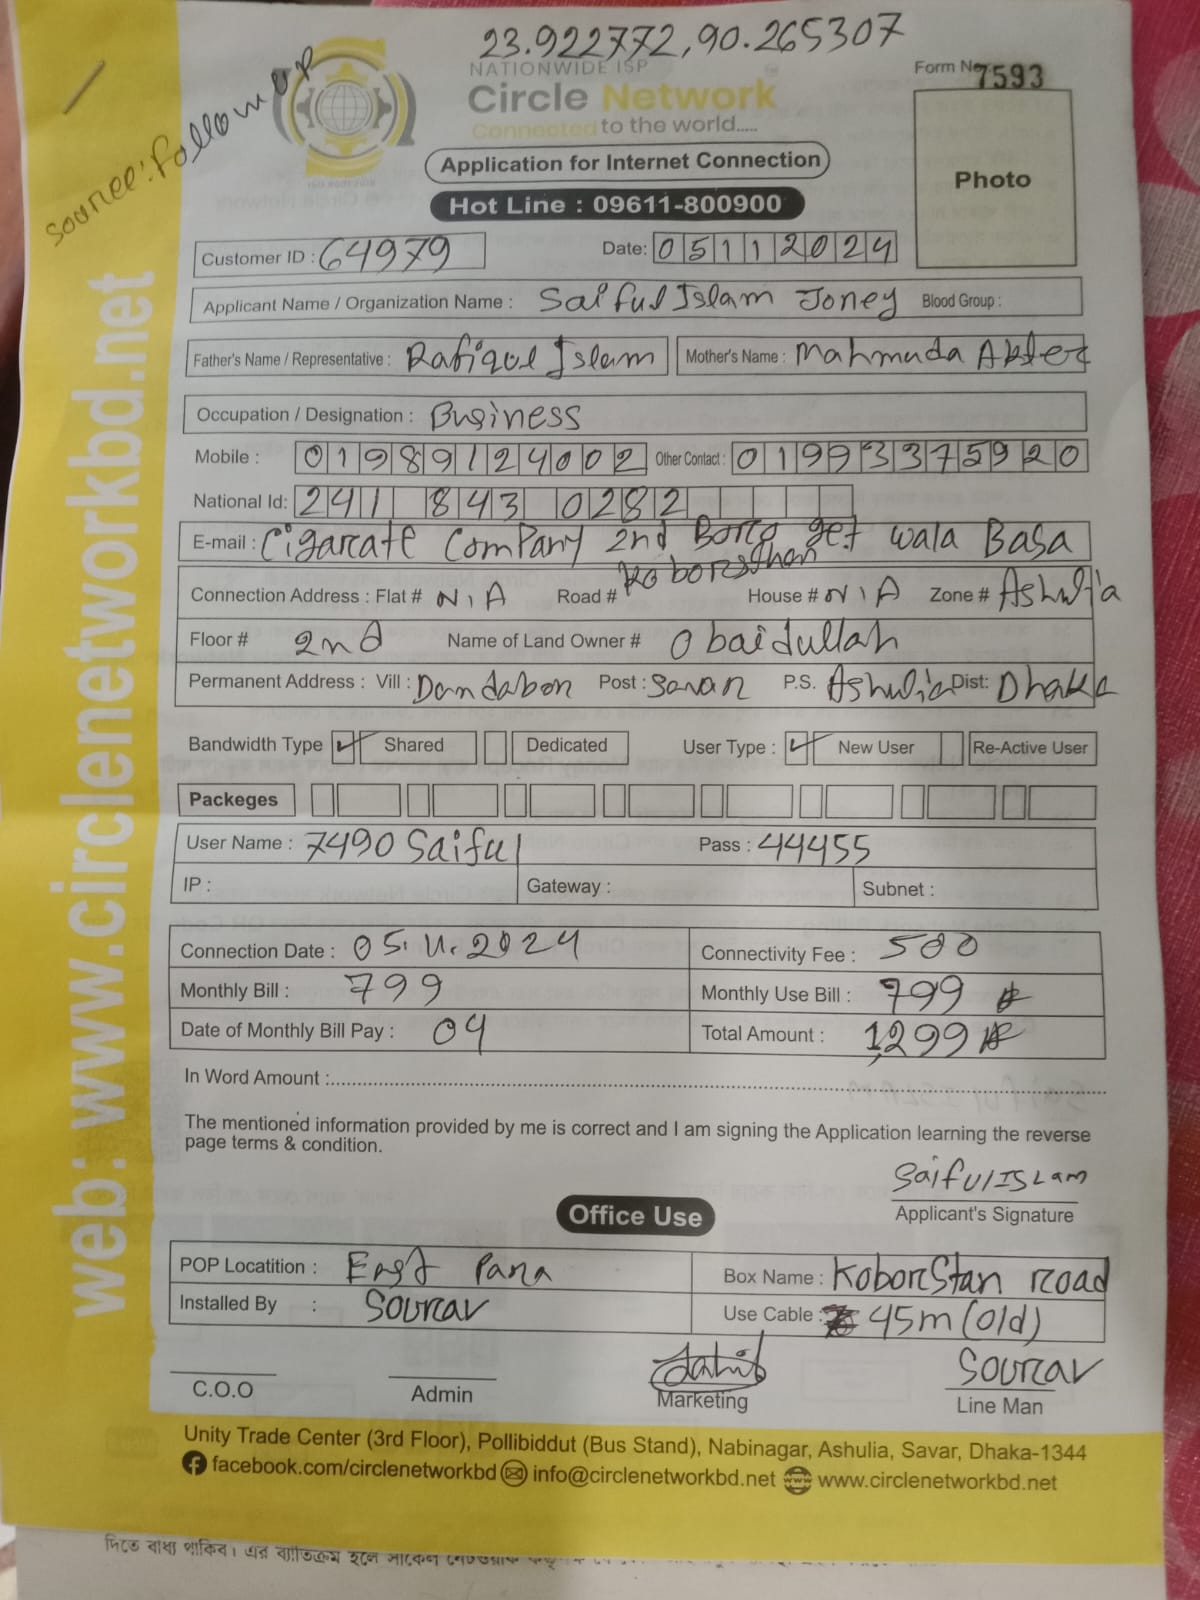 23.922772,90.265307
Source: Follow UP
NATIONWIDE ISP
Form No 7593
Circle Network
Connected to the world.....
Application for Internet Connection
Photo
Hot Line : 09611-800900
Customer ID : 64979 Date: 05112024
Applicant Name / Organization Name : Saiful Islam Joney Blood Group :
Father's Name / Representative : Rafiqul Islam Mother's Name : Mahmuda Akter
Occupation / Designation : Business
Mobile : 01989124002 Other Contact : 01993375920
National Id: 241 843 0282
E-mail : Cigarate Company 2nd get wala Basa
Connection Address : Flat # N/A Road # Koborsthan House # N/A Zone # Ashulia
Floor # 2nd Name of Land Owner # Obaidullah
Permanent Address : Vill : Dandabon Post : Savar P.S. Ashulia Dist: Dhaka
Bandwidth Type Shared Dedicated User Type : New User Re-Active User
Packeges
User Name : 7490 Saiful Pass : 44455
IP : Gateway : Subnet :
Connection Date : 05.11.2024 Connectivity Fee : 500
Monthly Bill : 799 Monthly Use Bill : 799
Date of Monthly Bill Pay : 04 Total Amount : 1,299
In Word Amount :
The mentioned information provided by me is correct and I am signing the Application learning the reverse
page terms & condition.
Saiful ISLam
Applicant's Signature
Office Use
POP Locatition : East Para Box Name : Koborstan road
Installed By : Sourav Use Cable : 45m (old)
Sourav
C.O.O Admin Marketing Line Man
Unity Trade Center (3rd Floor), Pollibiddut (Bus Stand), Nabinagar, Ashulia, Savar, Dhaka-1344
facebook.com/circlenetworkbd info@circlenetworkbd.net www.circlenetworkbd.net
web: www.circlenetworkbd.net
দিতে বাধ্য থাকিব। এর ব্যতিক্রম হলে সার্কেল নেটওয়ার্ক